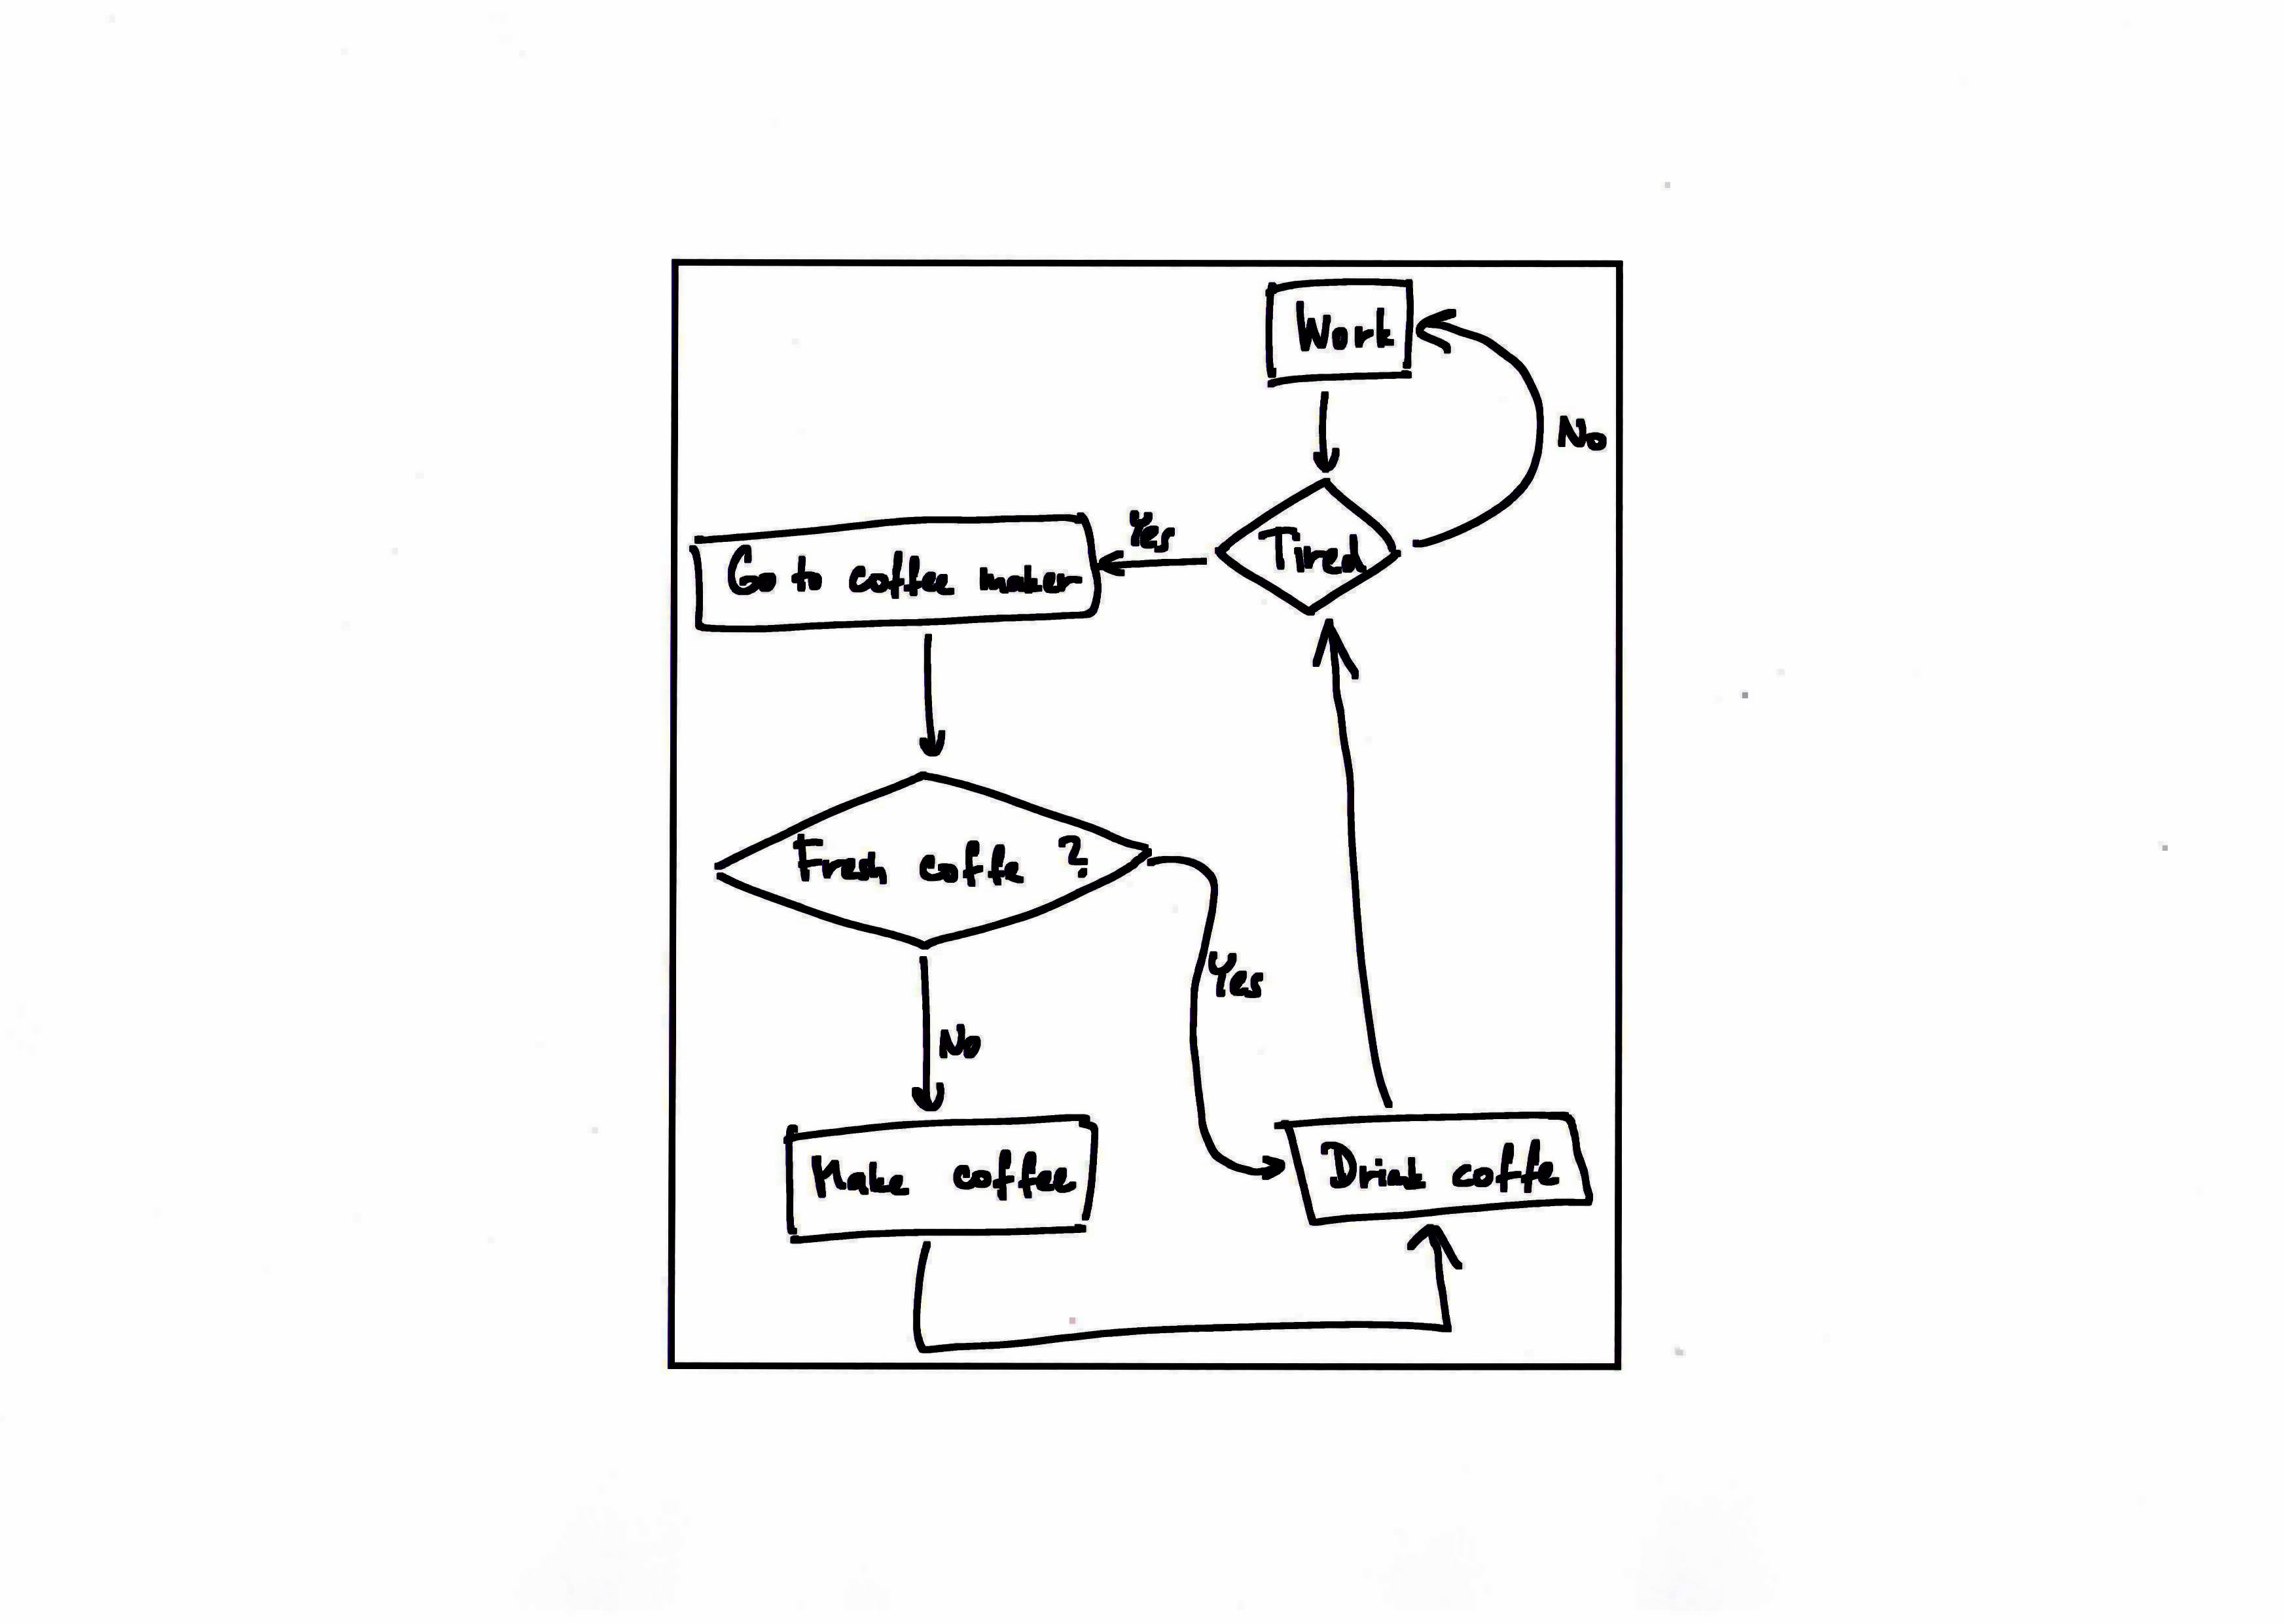 Work
No
Yes
Tired
Go to coffee maker
Fresh coffe ?
Yes
No
Make coffee
Drink coffe